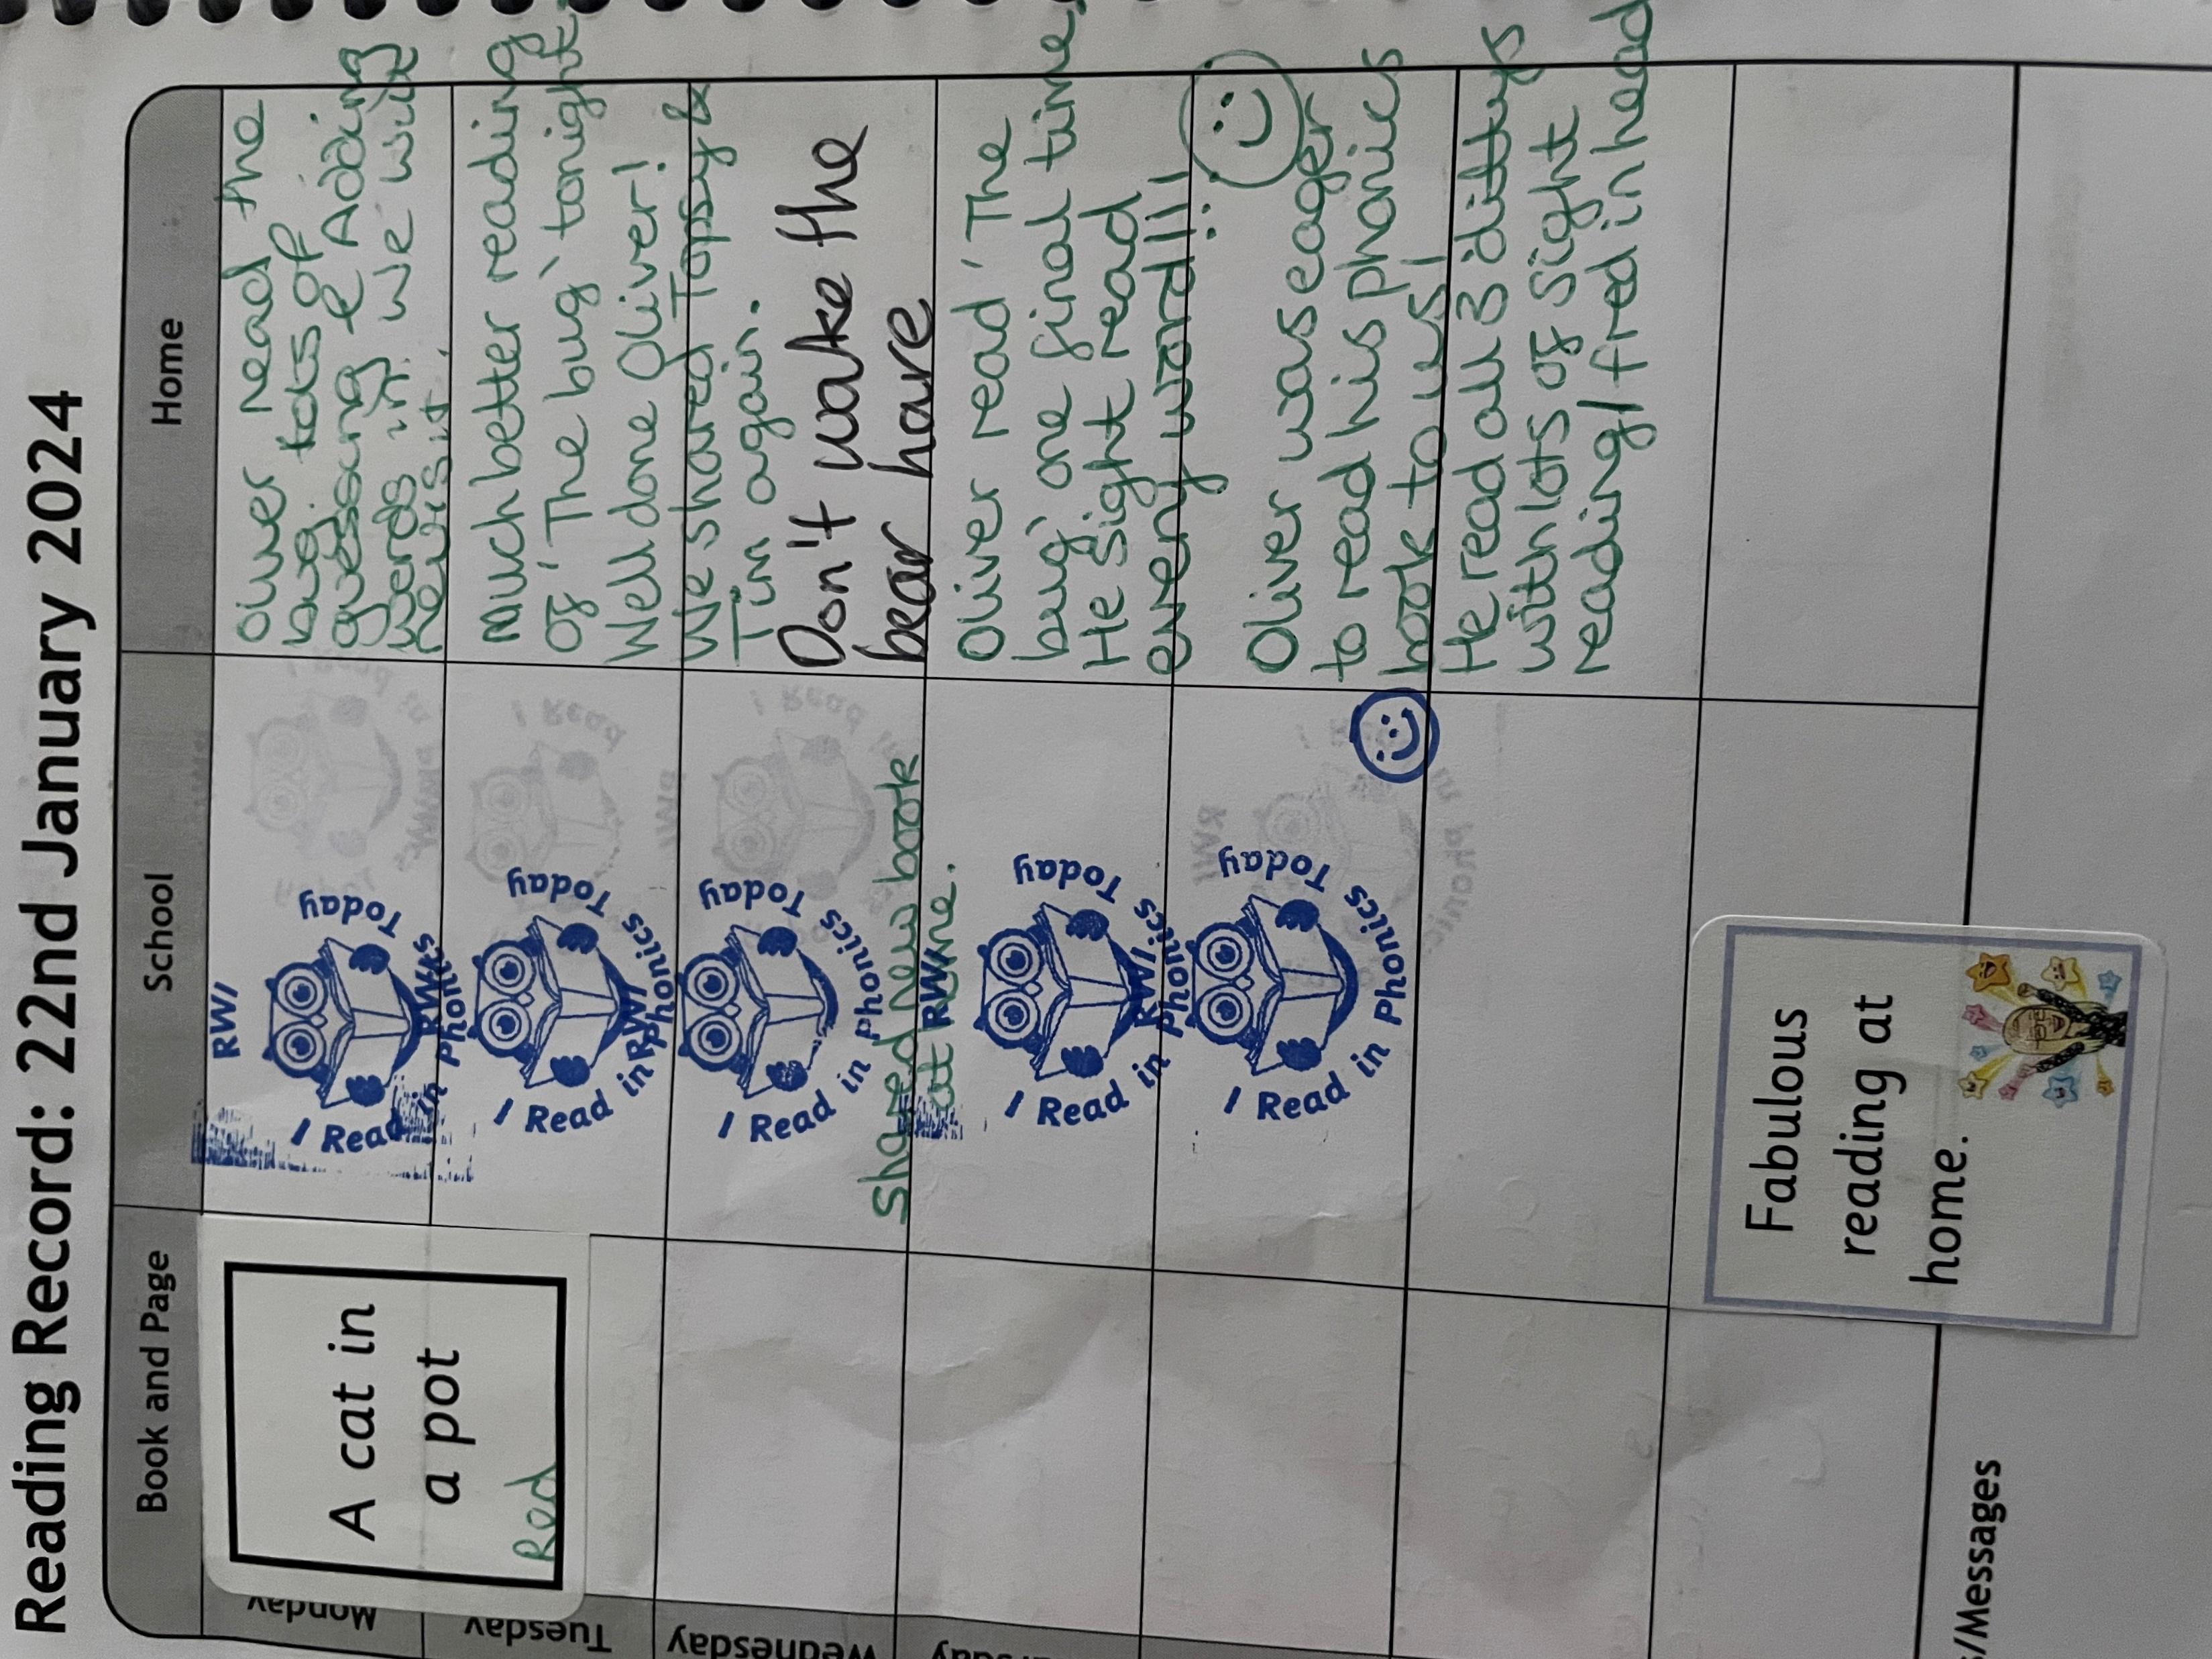 Reading Record: 22nd January 2024
Book and Page
School
Home
Monday
A cat in
a pot
Red
RWI
I Read in Phonics Today
Oliver read 'the
bug'. Lots of
guessing & Adding
words in. We will
revisit.
Tuesday
RWI
I Read in Phonics Today
Much better reading
of 'The bug' tonight.
Well done Oliver!
We shared Topsy &
Tim again.
Wednesday
RWI
I Read in Phonics Today
Shared new book
at home.
Don't wake the
bear hare
RWI
I Read in Phonics Today
Oliver read 'The
bug' one final time.
He sight read
every word!!!
RWI
I Read in Phonics Today
Oliver was eager
to read his phonics
book to us!
He read all 3 dittys
with lots of sight
reading/fred in head
Fabulous
reading at
home.
/Messages